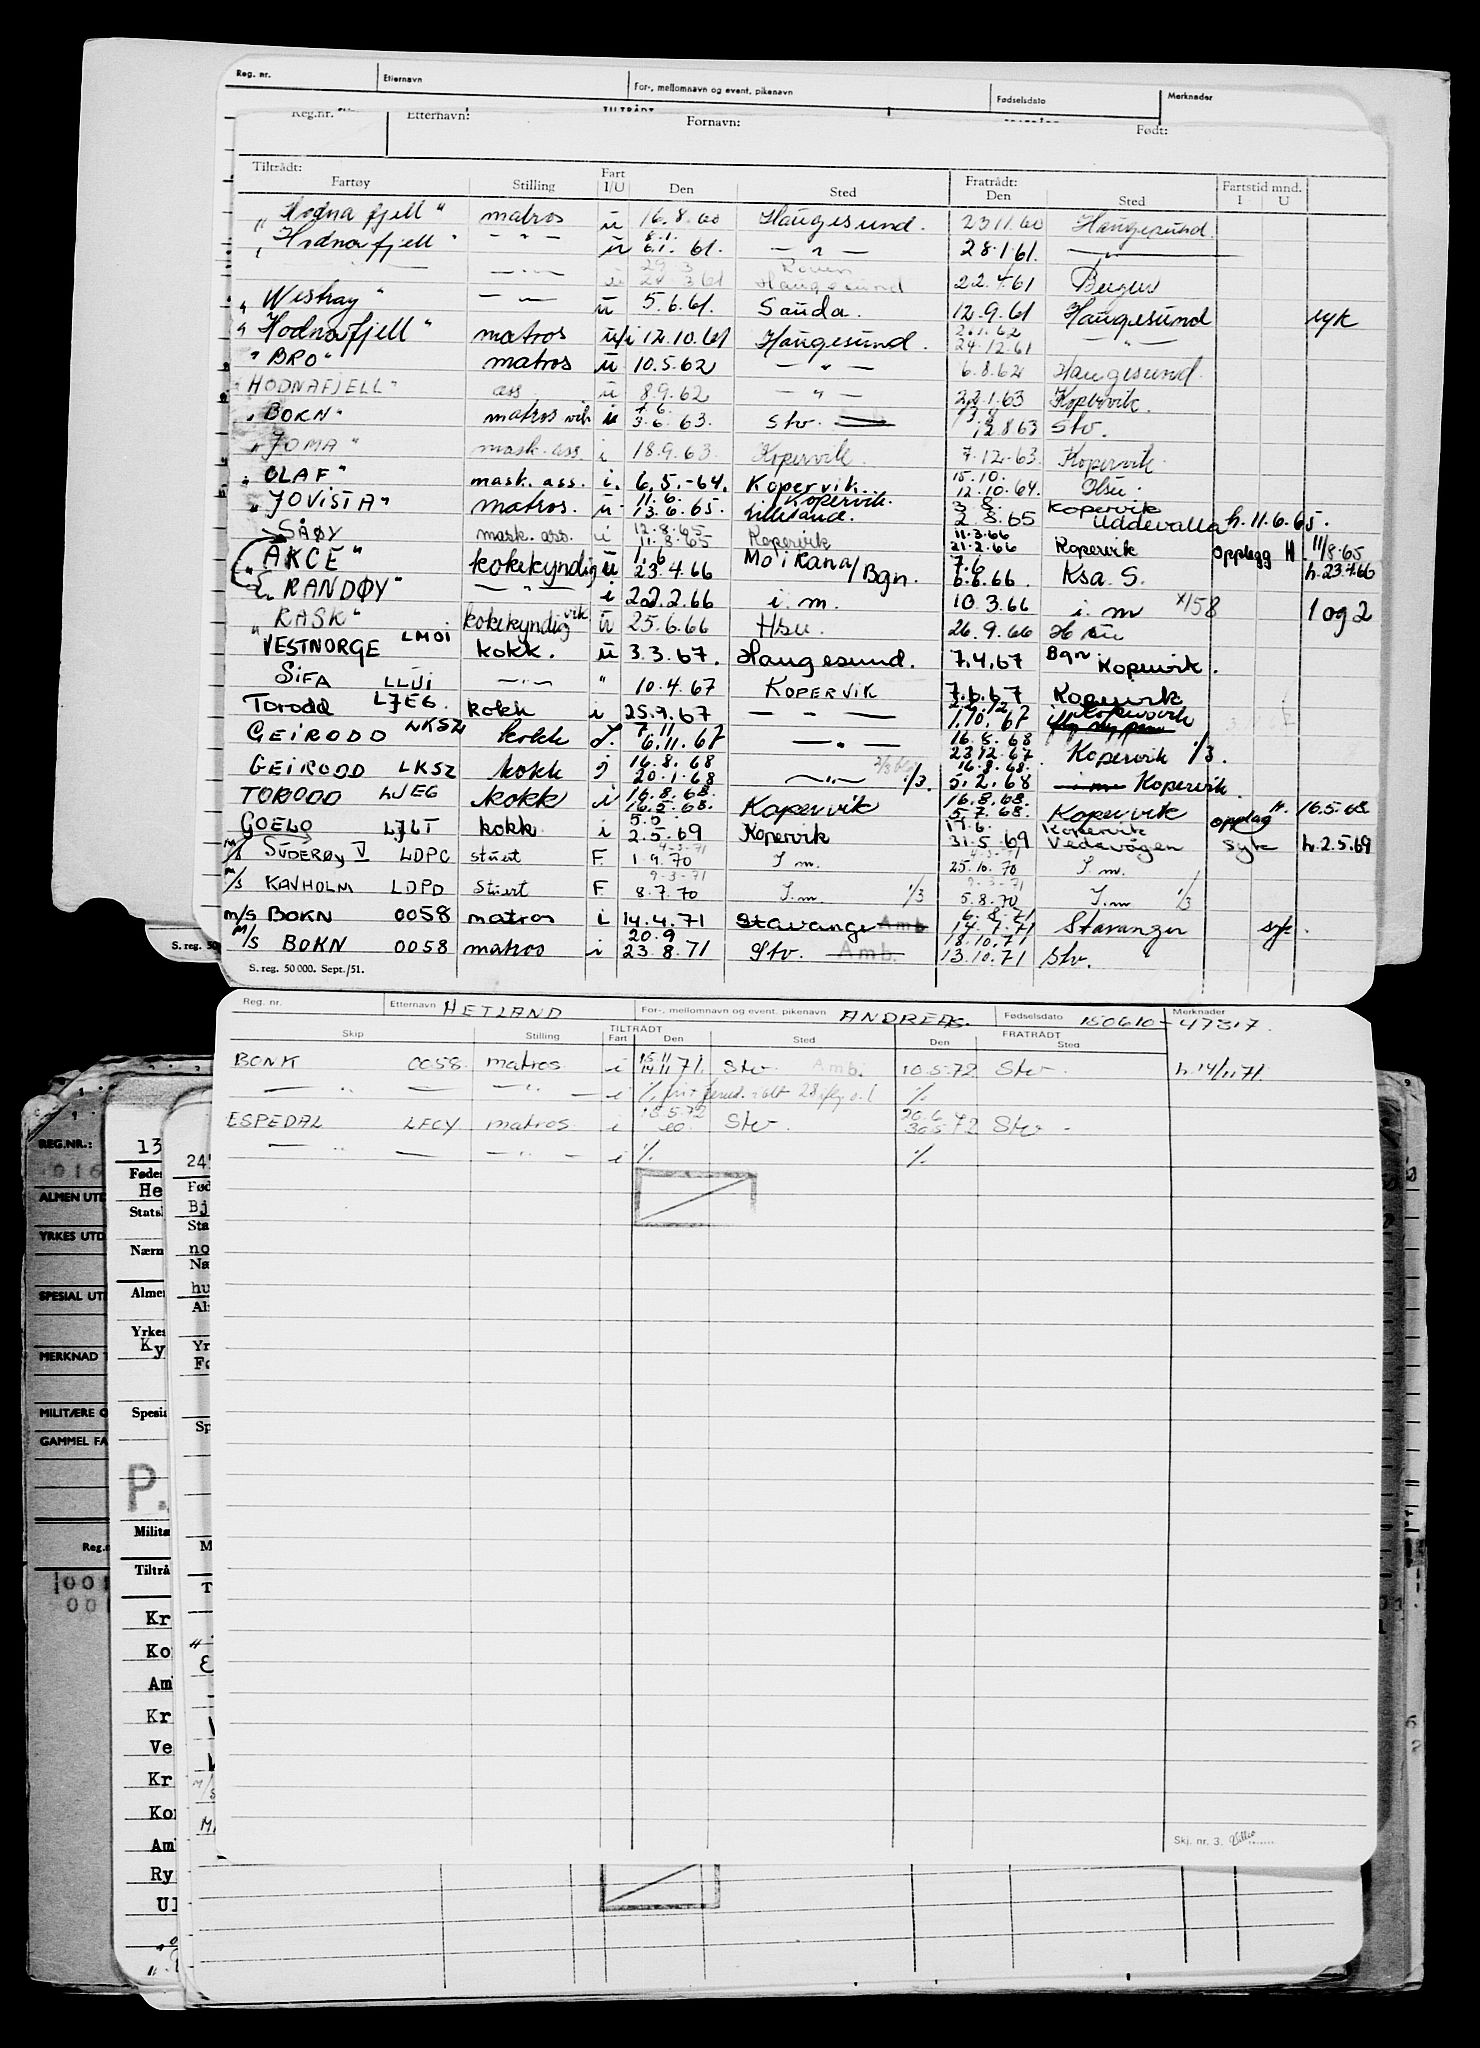 Reg. nr. Etternavn For-, mellomnavn og event. pikenavn Fødselsdato Merknader
TILTRÅDT
Reg.nr. Etternavn: Fornavn: Født:
Tiltrådt: Fratrådt:
Fartøy Stilling Fart I/U Den Sted Den Sted Fartstid mnd. I U
"Hodnafjell" matros u 16.8.60 Haugesund. 23 11.60 Haugesund.
"Hodnafjell" - " - u 8.1. 6.1. 61. - " - 28.1.61. - " -
- " - u 3 61 Haugesund 22.4.61 Bergen
"Westray" - " - u 5.6.61. Sauda. 12.9.61 Haugesund syk
"Hodnafjell" matros u/i 12.10.61 Haugesund. 2.1.62 24.12.61 - " -
"BRO" matros u 10.5.62 - " - 6.8.62 Haugesund.
"HODNAFJELL" ass u 8.9.62 - " - 22.1.63 Kopervik.
"BOKN" matros vik 4.6. 3.6.63. Stv. 12.8.63 Stv.
"JOMA" mask. ass i 18.9.63. Kopervik. 7.12.63. Kopervik.
"OLAF" mask. ass. i. 6.5.-64. Kopervik. 15.10. 12.10.64.
"JOVISTA" matros. u 11.6. 13.6.65. Kopervik. Lillesand. 3 8. 2 8.65 Kopervik Uddevalla h. 11.6.65.
SÅØY mask. ass. i 12.8.65 11.8.65 Kopervik 11.3.66 21.2.66 Kopervik opplegg H 11/8.65
"AKCE" kokkyndig u 1.6 23.4.66 Mo i Rana/Bgn. 7.6 6.6.66. Ksa. S. h. 23.4.66
"RANDØY" - " - i 22.2.66 i. m. 10.3.66 i. m x/58 1 og 2
"RASK" kokkyndig vik u 25.6.66 Hsu. 26.9.66 Hsu
VESTNORGE LMOI kokk. u 3.3.67. Haugesund. 7.4.67 Bgn Kopervik.
SIFA LLUI - " - " 10.4.67 KOPERVIK 7.6.67 Kopervik
Torodd LJEG. kokk i 25.9.67 - " - 1.10.67 Kopervik
GEIRODD LKSZ kokk I. 7.11 6.11.67 - " - 16.8.68 23.12.67 Kopervik 1/3.
GEIRODD LKSZ kokk i 16.8.68 20.1.68 - " - 1/3. 16.8.68. 5.2.68 i m Kopervik.
TORODD LJEG kokk i 16.8.68. 16.5.68. Kopervik 16.8.68. 5.7.68. Kopervik opplag H. 16.5.68
GOELO LJLT kokk i 5.5. 2.5.69 Kopervik 19.6. 31.5.69 Kopervik Vedavågen Syk h. 2.5.69
M/S SUDERØY V LDPC stuert F. 4-3-71 1.9.70 I m. 4-3-71 25.10.70 I. m.
M/S KAVHOLM LDPD Stuert F. 9-3-71 8.7.70 I.m 1/3 9-3-71 5.8.70 I.m 1/3
M/S BOKN 0058 matros i 14.4.71 Stavanger Amb 6.8.71 14.7.71 Stavanger syk.
M/S BOKN 0058 matros i 20.9 23.8.71 Stv. Amb. 18.10.71 13.10.71 Stv.
S. reg. 50 000. Sept./51.
S. reg. 50
Reg. nr. Etternavn HETLAND For-, mellomnavn og event. pikenavn ANDREAS. Fødselsdato 150610-47317. Merknader
TILTRÅDT FRATRÅDT
Skip Stilling Fart Den Sted Den Sted
BONK 0058. matros. i 15.11 14.11 71. Stv. Amb. 10.5.72 Stv. h. 14/11 71.
- " - - " - i %
ESPEDAL LFCY matros. i 18.5.72 Stv. 20.6 30.5 72 Stv -
- " - - " - i % %
Skj. nr. 3.
REG.NR.:
916
ALMEN UTD
YRKES UTD
SPECIAL UT
MERKNAD T
MILITÆRE O
GAMMEL FA
Reg.n
001
001
13
Fødes
He
Stats
Nærn
Alme
Yrkes
Ky
Spesia
P.
Milita
Tiltrå
Kr
Ko
Am
Kr
Ve
Kr
Kor
Aml
Ry
Ul
24
Fød
Bj
Sta
no
Næ
hu
Al
Yr
Fø
Sp
M
T